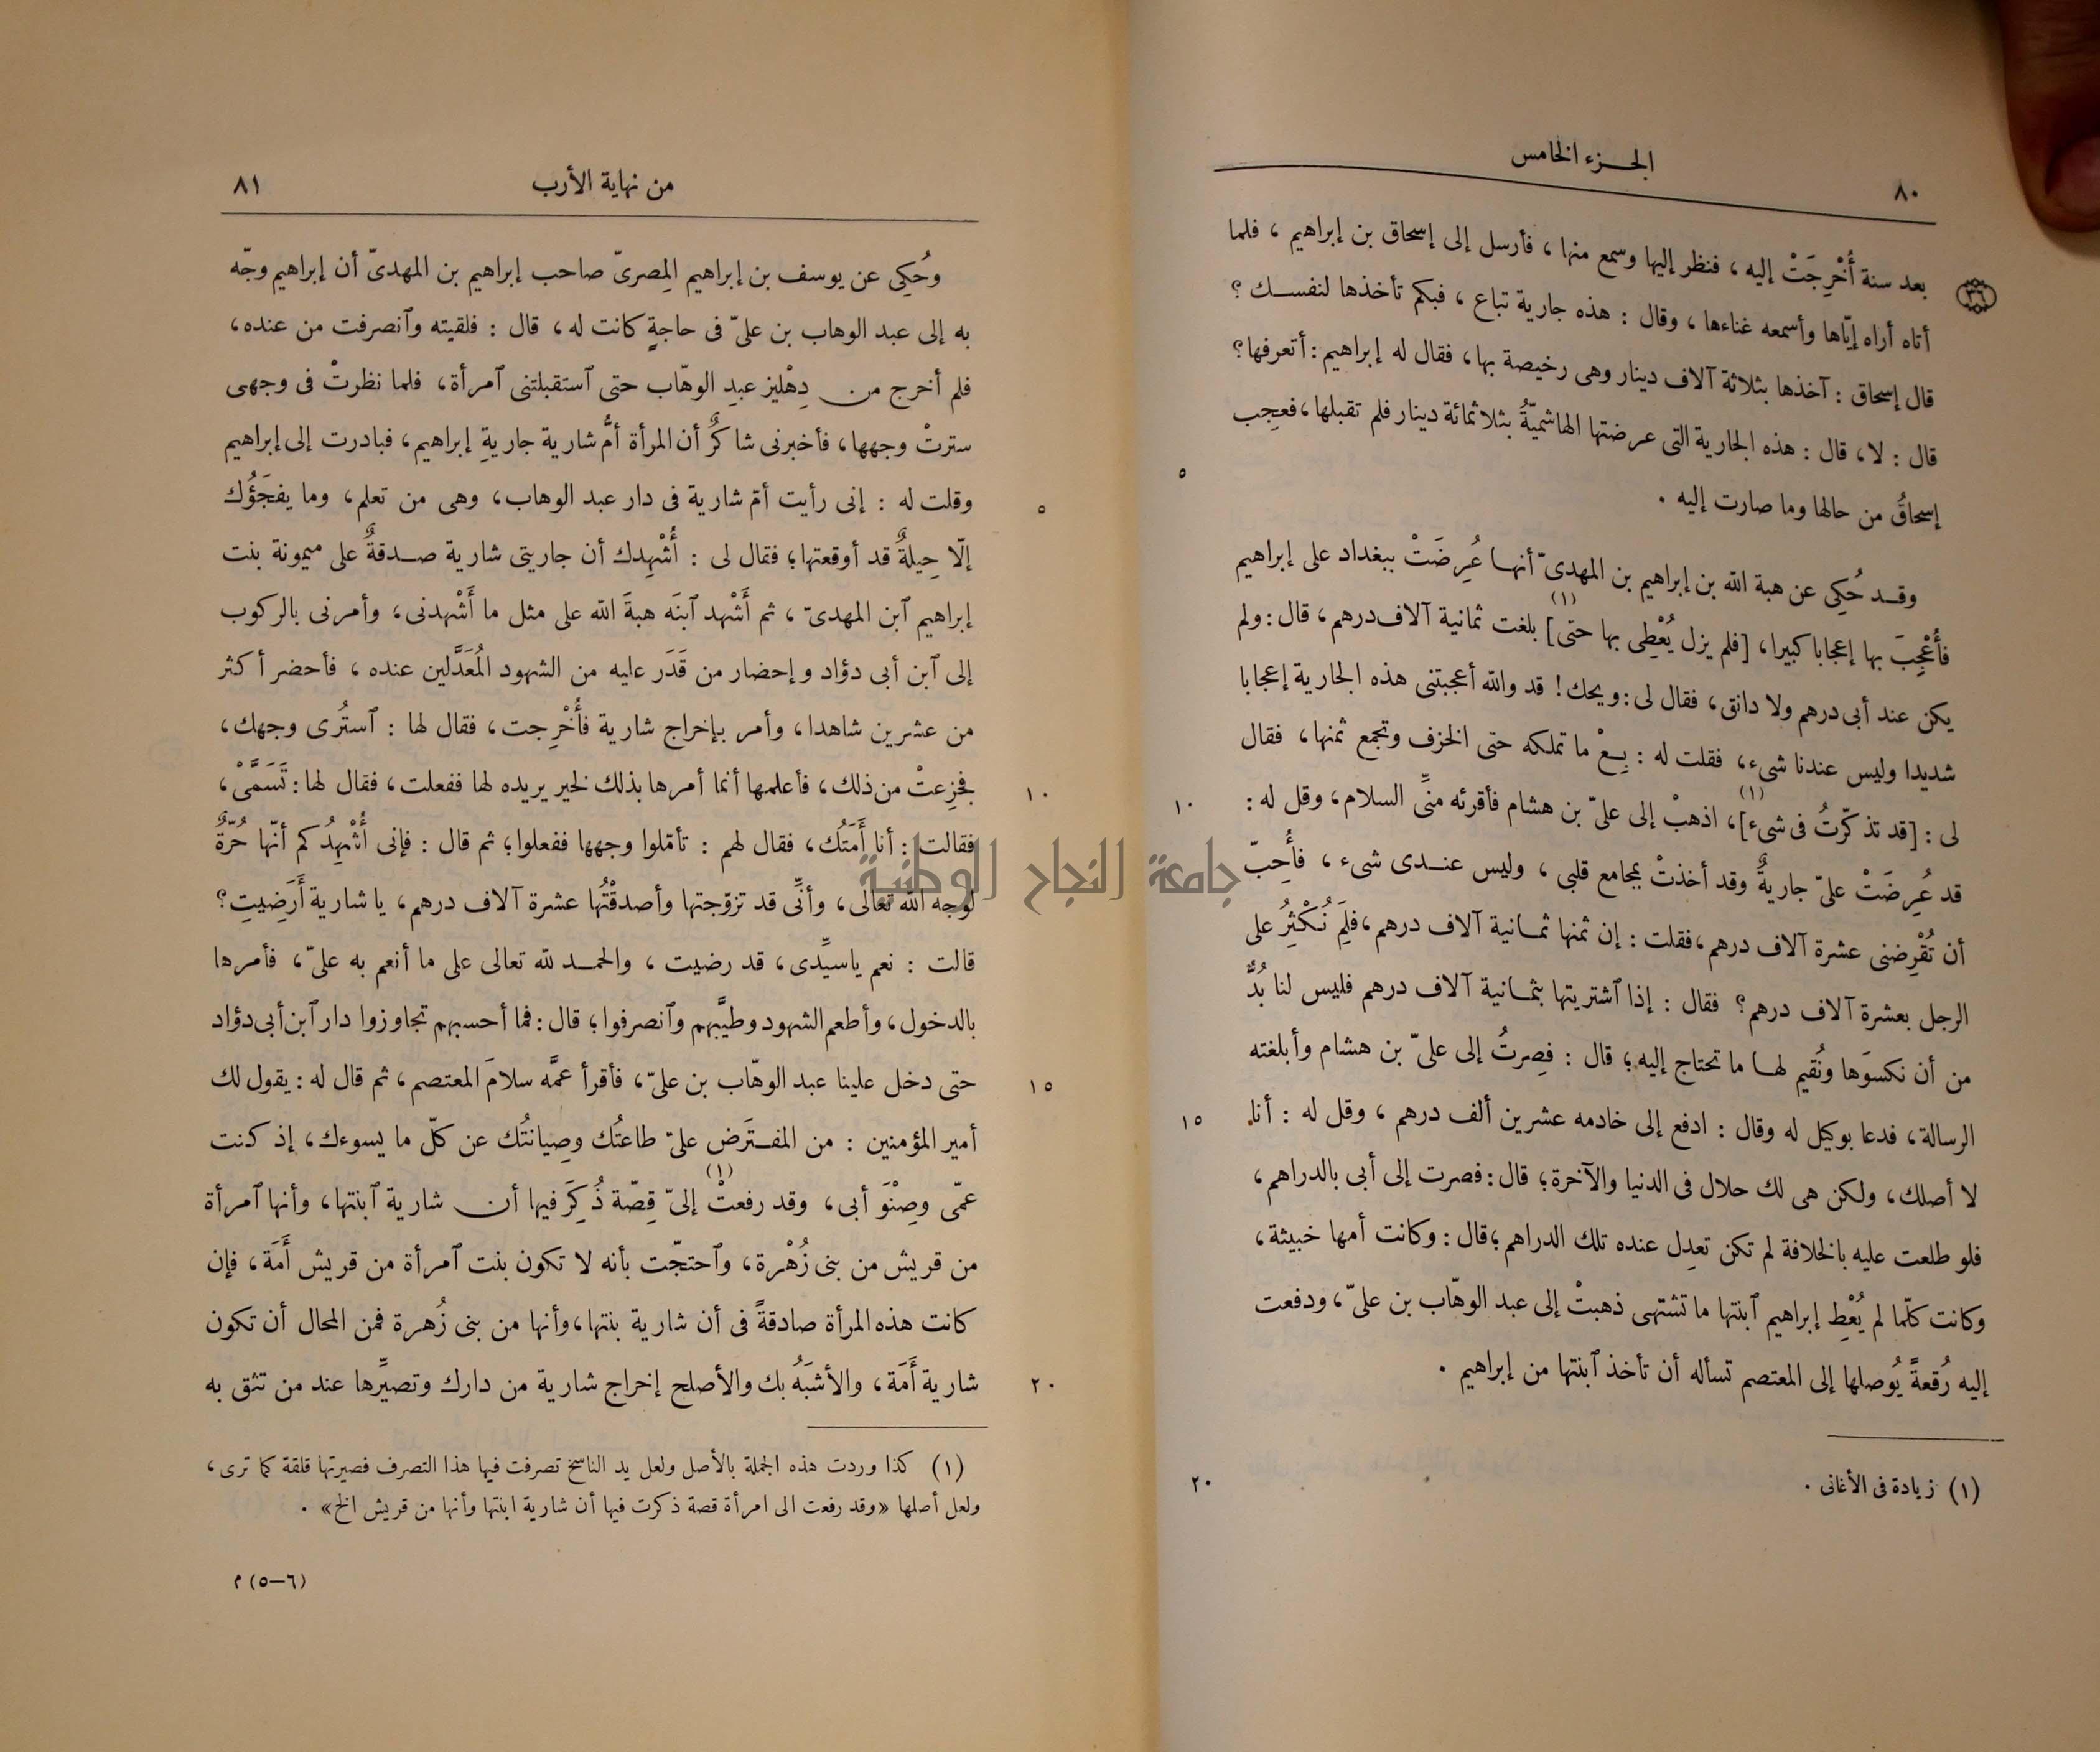 الجزء الخامس
٨٠
بعد سنة أُخْرِجَتْ إليه، فنظر إليها وسمع منها، فأرسل إلى إسحاق بن إبراهيم، فلما
٣٦
أتاه أراه إيّاها وأسمعه غناءها، وقال : هذه جارية تباع، فبكم تأخذها لنفسك ؟
قال إسحاق : آخذها بثلاثة آلاف دينار وهى رخيصة بها، فقال له إبراهيم : أتعرفها؟
قال : لا، قال : هذه الجارية التى عرضتها الهاشميّةُ بثلاثمائة دينار فلم تقبلها، فعجِب
٥
إسحاقُ من حالها وما صارت إليه .
وقد حُكِى عن هبة الله بن إبراهيم بن المهدىّ أنها عُرِضَتْ ببغداد على إبراهيم
فأُعْجِبَ بها إعجابا كبيرا، [فلم يزل يُعْطِى بها حتى](١) بلغت ثمانية آلاف درهم، قال : ولم
يكن عند أبى درهم ولا دانق، فقال لى : ويحك! قد والله أعجبتنى هذه الجارية إعجابا
شديدا وليس عندنا شىء، فقلت له : بِعْ ما تملكه حتى الخزف وتجمع ثمنها، فقال
لى : [قد تذكّرتُ فى شىء](١)، اذهبْ إلى علىّ بن هشام فأقرئه منِّى السلام، وقل له :
١٠
قد عُرِضَتْ علىّ جاريةٌ وقد أخذتْ بمجامع قلبى، وليس عندى شىء، فأُحِبّ
أن تُقْرِضنى عشرة آلاف درهم، فقلت : إن ثمنها ثمانية آلاف درهم، فلِمَ نُكْثِرُ على
الرجل بعشرة آلاف درهم؟ فقال : إذا ٱشتريتها بثمانية آلاف درهم فليس لنا بُدٌّ
من أن نكسوَها ونُقيم لها ما تحتاج إليه؛ قال : فصِرتُ إلى علىّ بن هشام وأبلغته
الرسالة، فدعا بوكيل له وقال : ادفع إلى خادمه عشرين ألف درهم، وقل له : أنا
١٥
لا أصلك، ولكن هى لك حلال فى الدنيا والآخرة؛ قال : فصرت إلى أبى بالدراهم،
فلو طلعت عليه بالخلافة لم تكن تعدِل عنده تلك الدراهم؛ قال : وكانت أمها خبيثة،
وكانت كلّما لم يُعْطِ إبراهيم ٱبنتها ما تشتهى ذهبتْ إلى عبد الوهّاب بن علىّ، ودفعت
إليه رُقعةً يُوصلها إلى المعتصم تسأله أن تأخذ ٱبنتها من إبراهيم .
(١) زيادة فى الأغانى .
٢٠
من نهاية الأرب
٨١
وحُكِى عن يوسف بن إبراهيم المِصرىّ صاحب إبراهيم بن المهدىّ أن إبراهيم وجّه
به إلى عبد الوهاب بن علىّ فى حاجةٍ كانت له، قال : فلقيته وٱنصرفت من عنده،
فلم أخرج من دِهْليز عبدِ الوهّاب حتى ٱستقبلتنى ٱمرأة، فلما نظرتْ فى وجهى
سترتْ وجهها، فأخبرنى شاكرٌ أن المرأة أمُّ شارية جاريةِ إبراهيم، فبادرت إلى إبراهيم
وقلت له : إنى رأيت أمّ شارية فى دار عبد الوهاب، وهى من تعلم، وما يفجَؤُك
٥
إلّا حِيلةٌ قد أوقعتها؛ فقال لى : أُشْهِدك أن جاريتى شارية صدقةٌ على ميمونة بنت
إبراهيم ٱبن المهدىّ، ثم أَشْهد ٱبنَه هبةَ الله على مثل ما أَشْهدنى، وأمرنى بالركوب
إلى ٱبن أبى دؤاد وإحضار من قَدَر عليه من الشهود المُعَدَّلين عنده، فأحضر أكثر
من عشرين شاهدا، وأمر بإخراج شارية فأُخْرِجت، فقال لها : ٱستُرى وجهك،
فجزِعتْ من ذلك، فأعلمها أنما أمرها بذلك لخير يريده لها ففعلت، فقال لها : تَسَمَّىْ،
١٠
فقالت : أنا أَمَتُك، فقال لهم : تأمّلوا وجهها ففعلوا؛ ثم قال : فإنى أُشْهِدُكم أنّها حُرّةٌ
لوجه الله تعالى، وأنِّى قد تزوّجتها وأصدقْتُها عشرة آلاف درهم، يا شارية أَرَضِيتِ؟
جامعة النجاح الوطنية
قالت : نعم ياسيِّدى، قد رضيت، والحمد لله تعالى على ما أنعم به علىّ، فأمرها
بالدخول، وأطعم الشهود وطيَّبهم وٱنصرفوا؛ قال : فما أحسبهم تجاوزوا دار ٱبن أبى دؤاد
حتى دخل علينا عبد الوهّاب بن علىّ، فأقرأ عمَّه سلامَ المعتصم، ثم قال له : يقول لك
١٥
أمير المؤمنين : من المفترَض علىّ طاعتُك وصِيانتُك عن كلّ ما يسوءك، إذ كنت
عمّى وصِنْوَ أبى، وقد رفعتْ(١) إلىّ قِصّة ذُكِرَ فيها أن شارية ٱبنتها، وأنها ٱمرأة
من قريش من بنى زُهْرة، وٱحتجّت بأنه لا تكون بنت ٱمرأة من قريش أَمَة، فإن
كانت هذه المرأة صادقةً فى أن شارية بنتها، وأنها من بنى زُهرة فمن المحال أن تكون
شارية أَمَة، والأشبَهُ بك والأصلح إخراج شارية من دارك وتصيِّرها عند من تثق به
٢٠
(١) كذا وردت هذه الجملة بالأصل ولعل يد الناسخ تصرفت فيها هذا التصرف فصيرتها قلقة كما ترى،
ولعل أصلها «وقد رفعت الى امرأة قصة ذكرت فيها أن شارية ابنتها وأنها من قريش الخ» .
(٦-٥) م